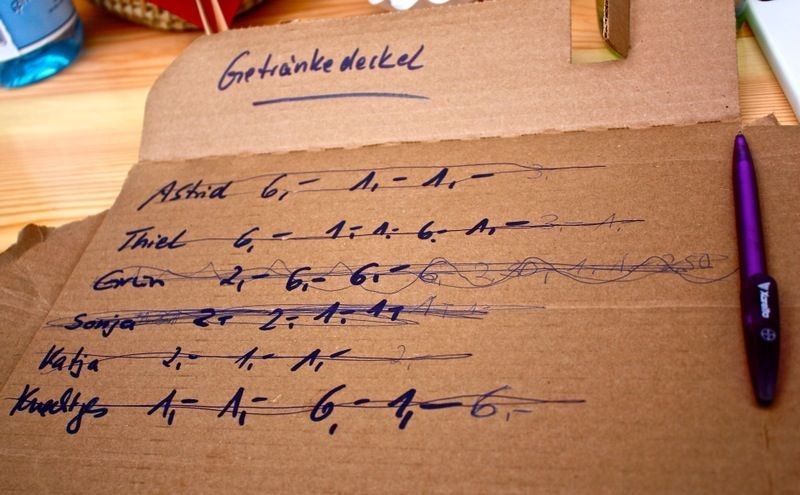 Getränkedeckel
Astrid 6,- 1,- 1,- 3,-
Thiel 6,- 1,- 1,- 6,- 1,- 3,- 1,-
Grün 2,- 6,- 6,- 6,- 2,50
Sonja 2,- 2,- 1,- 1,-
Katja 2,- 1,- 1,- 2,-
1,- 1,- 6,- 1,- 6,-
Xarelto